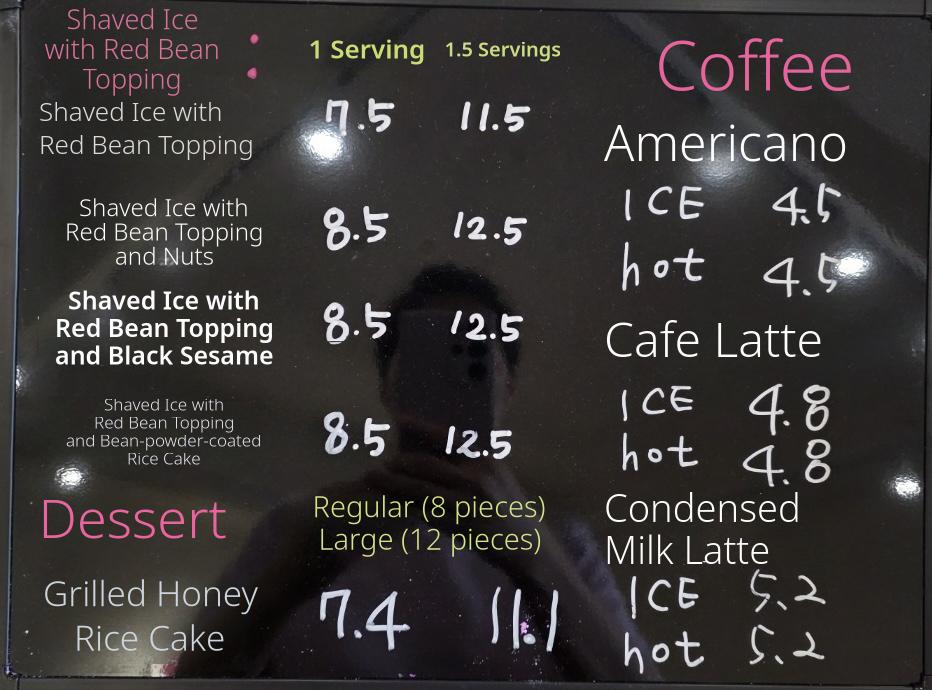 Shaved Ice
with Red Bean
Topping :
1 Serving 1.5 Servings
Shaved Ice with
Red Bean Topping
7.5 11.5
Shaved Ice with
Red Bean Topping
and Nuts
8.5 12.5
Shaved Ice with
Red Bean Topping
and Black Sesame
8.5 12.5
Shaved Ice with
Red Bean Topping
and Bean-powder-coated
Rice Cake
8.5 12.5
Dessert
Regular (8 pieces)
Large (12 pieces)
Grilled Honey
Rice Cake
7.4 11.1
Coffee
Americano
ICE 4.5
hot 4.5
Cafe Latte
ICE 4.8
hot 4.8
Condensed
Milk Latte
ICE 5.2
hot 5.2